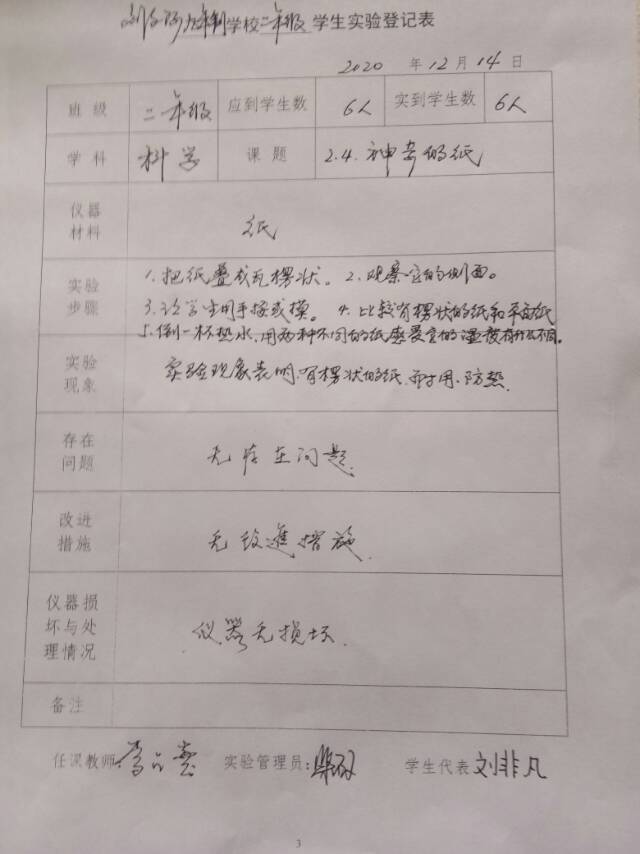 九年制学校二年级学生实验登记表
2020 年 12 月 14 日
班级 二年级 应到学生数 6人 实到学生数 6人
学科 科学 课题 2.4.神奇的纸
仪器
材料
纸
实验
步骤
1.把纸叠成瓦楞状。 2.观察它的侧面。
3.让学生用手按或摸。 4.比较有楞状的纸和平面纸
5.倒一杯热水,用两种不同的纸感受它的温度有什么不同。
实验
现象
实验现象表明,有楞状的纸 耐用、防热.
存在
问题
无存在问题.
改进
措施
无改進措施.
仪器损
坏与处
理情况
仪器无损坏.
备注
任课教师: 实验管理员: 学生代表 刘非凡
3